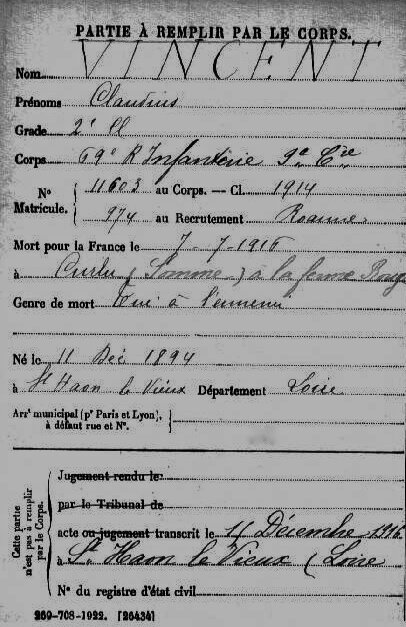 PARTIE À REMPLIR PAR LE CORPS.
Nom VINCENT
Prénoms Claudius
Grade 2e Cl
Corps 69e R Infanterie 9e Cie
N° Matricule. 11603 au Corps. — Cl. 1914
974 au Recrutement Roanne
Mort pour la France le 7-7-1916
à Curlu (Somme) a la ferme Roug
Genre de mort Tué à l'ennemi
Né le 11 Déc 1894
à St Haon le Vieux Département Loire
Arrt municipal (pr Paris et Lyon), à défaut rue et N°.
Cette partie n'est pas à remplir par le Corps.
Jugement rendu le
par le Tribunal de
acte ou jugement transcrit le 11 Décembre 1916
à St Haon le Vieux (Loire
N° du registre d'état civil
269-708-1922. [26434]